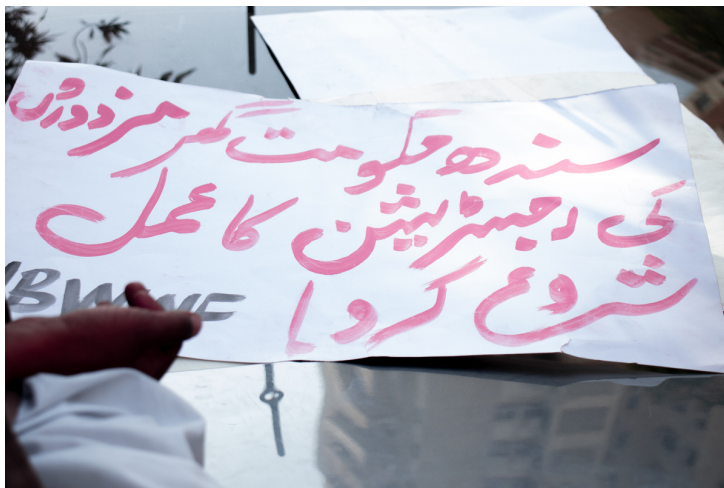 سندھ حکومت گھر مزدوروں
کی رجسٹریشن کا عمل
شروع کرو!
HBWWF